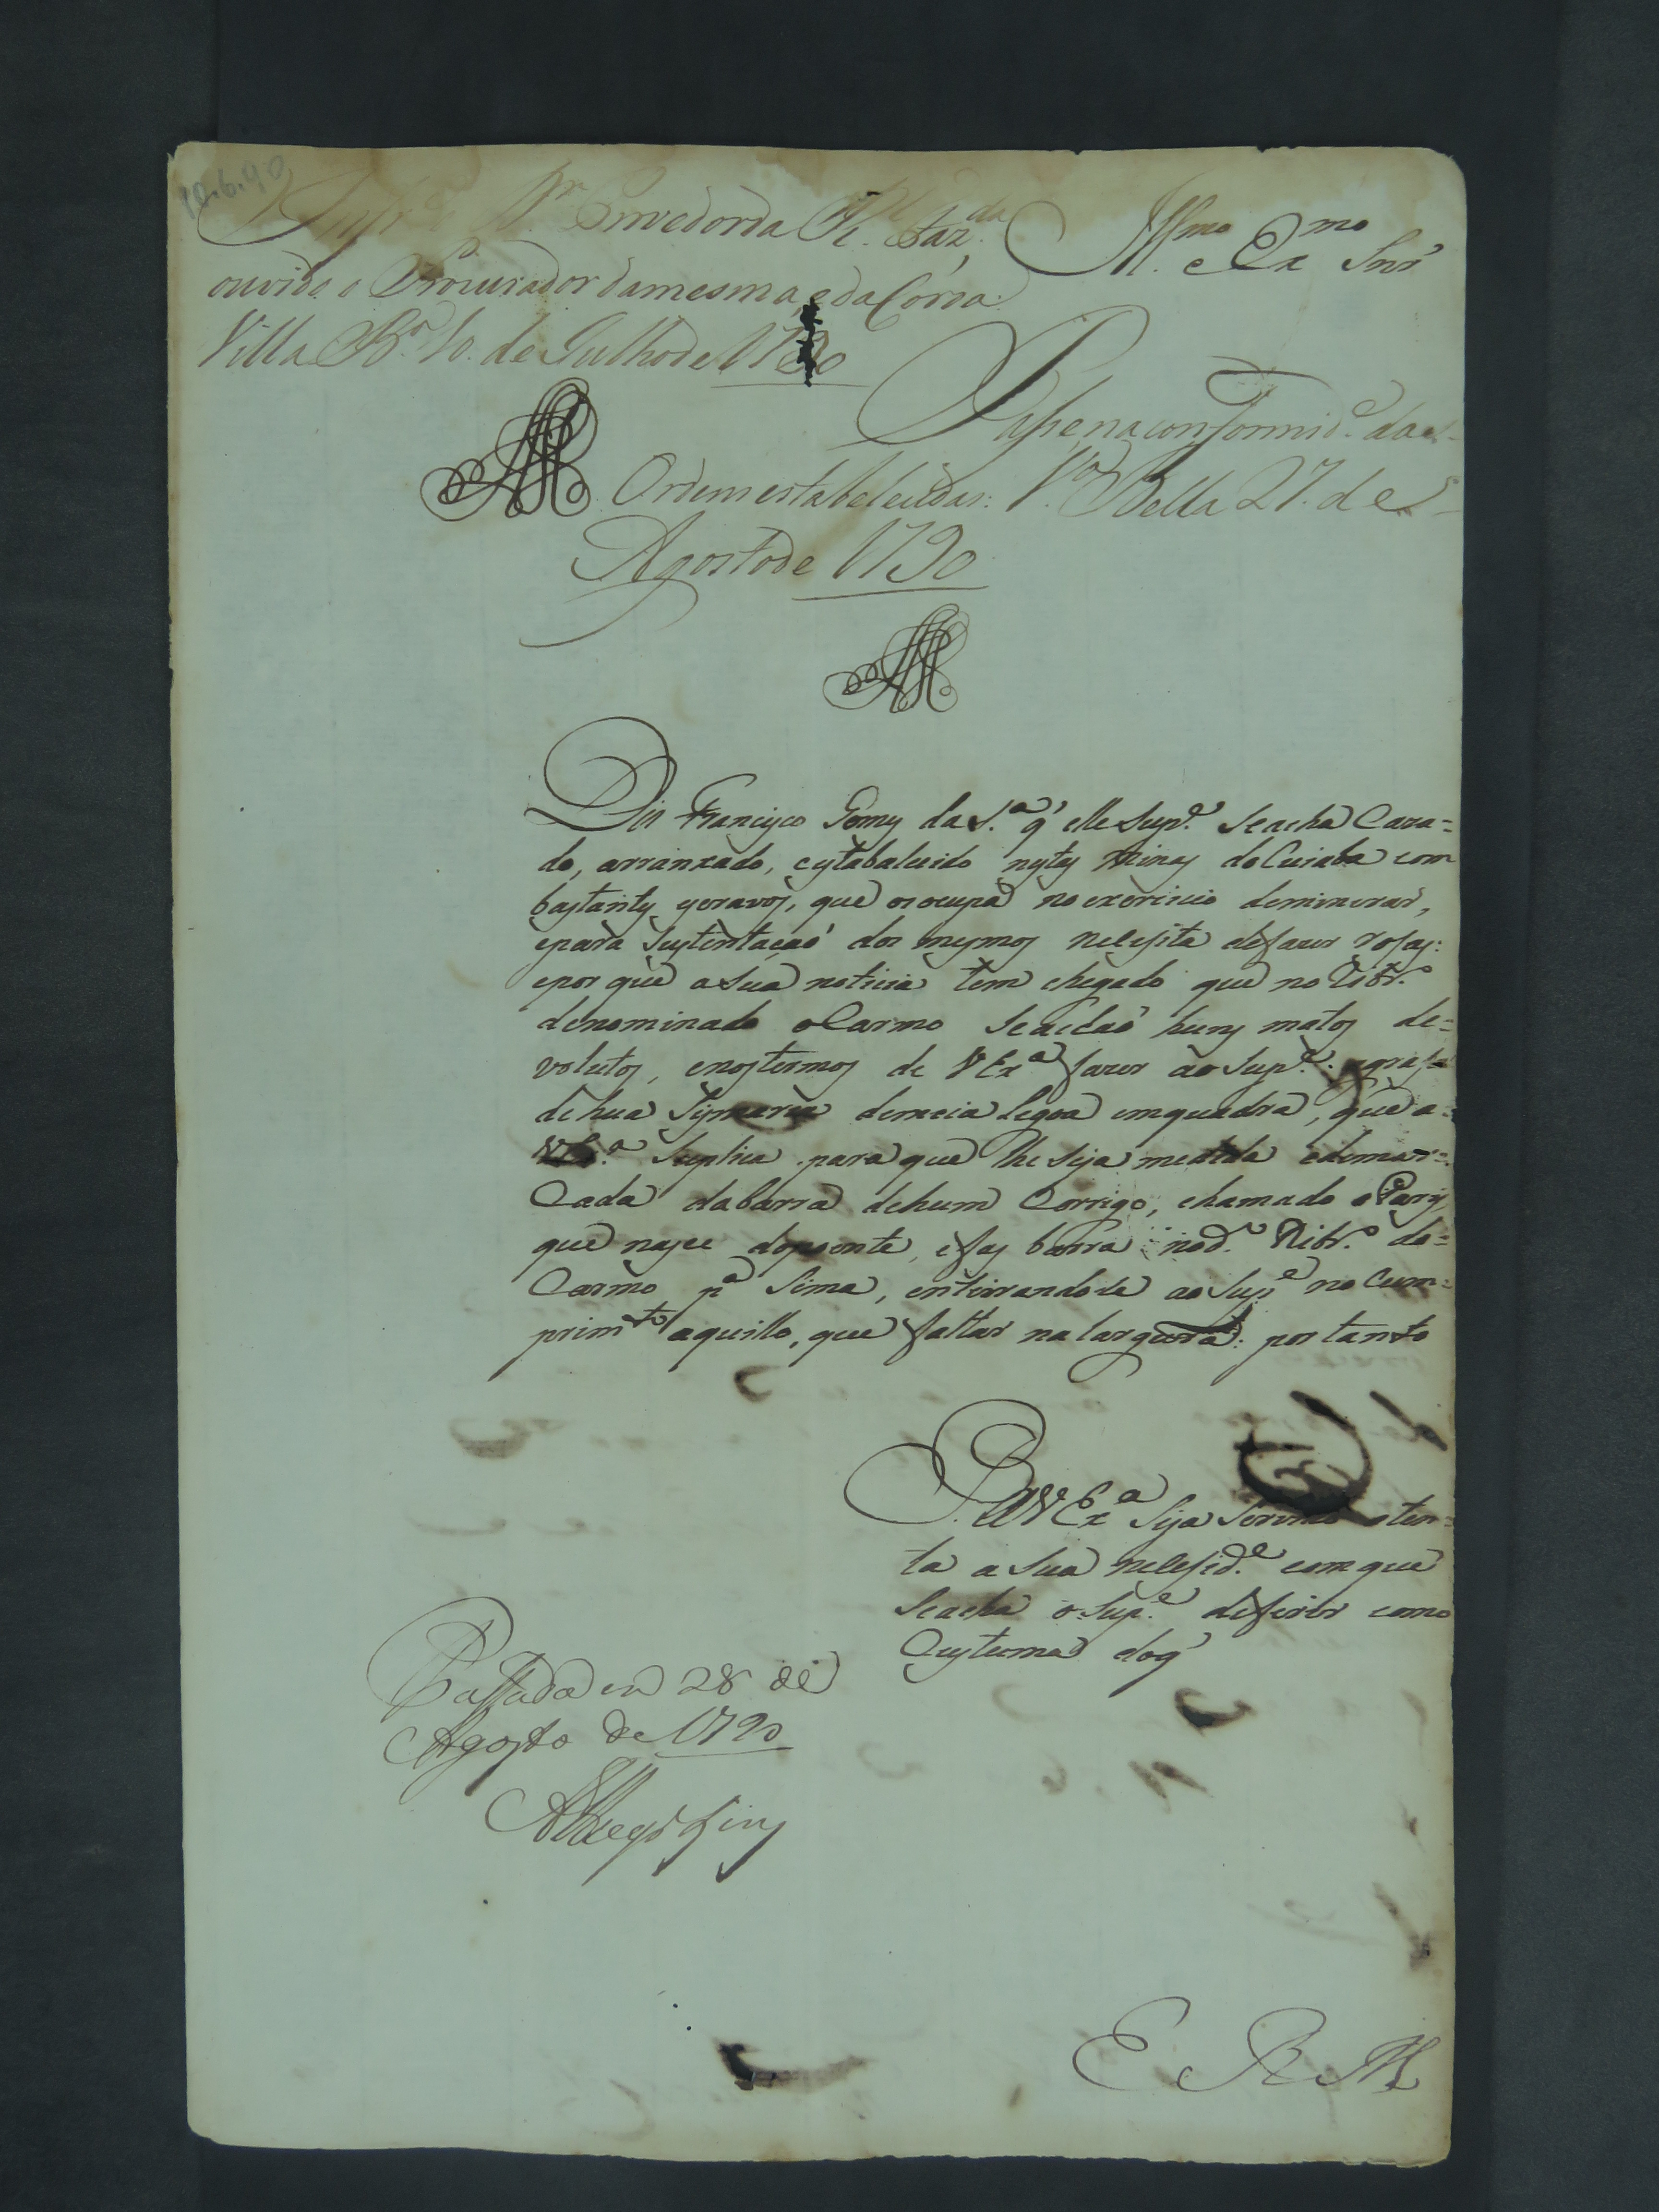 10.6.90
Inf.e o D.r Provedor da R.l Faz.da
ouvido o Procurador da mesma, e da Coroa.
Villa B.a 10. de Julho de 1790
Ill.mo e Ex.mo Snr'
Passe na conformid.e das
Ordems estabelecidas: V.a Bella 27. de
Agosto de 1790
Diz Francisco Gomes da S.a q' elle Sup.e se acha Caza=
do, arranxado, e estabalecido nestas Minas do Cuiaba com
bastantes escravos, que os ocupa no exercicio deminerar,
epara Sustentaçaó dos mesmos nececita defazer rosas:
epor que a sua noticia tem chegado que no Ribr.o
denominado o Carmo se achaó huns matos de=
volutos, enostermos de V Ex.a fazer ao Sup.e a grasa
de hua Sismaria demeia legoa emquadra, que a
V Ex.a Suplica para que lhe seja medida edemar=
Cada dabarra dehum Corrigo, chamado o Pary
que nasce dopoente, efas barra nod.o Ribr.o do=
Carmo p.a Sima, enteirandose ao Sup.e no Cum=
prim.to aquillo, que faltar nalargura: por tanto
P. a V Ex.a Seja Servido aten=
ta a sua necesid.e com que
Seacha o Sup.e deferir como
Custuma doq'
Passada em 28 de
Agosto de 1790
E R M